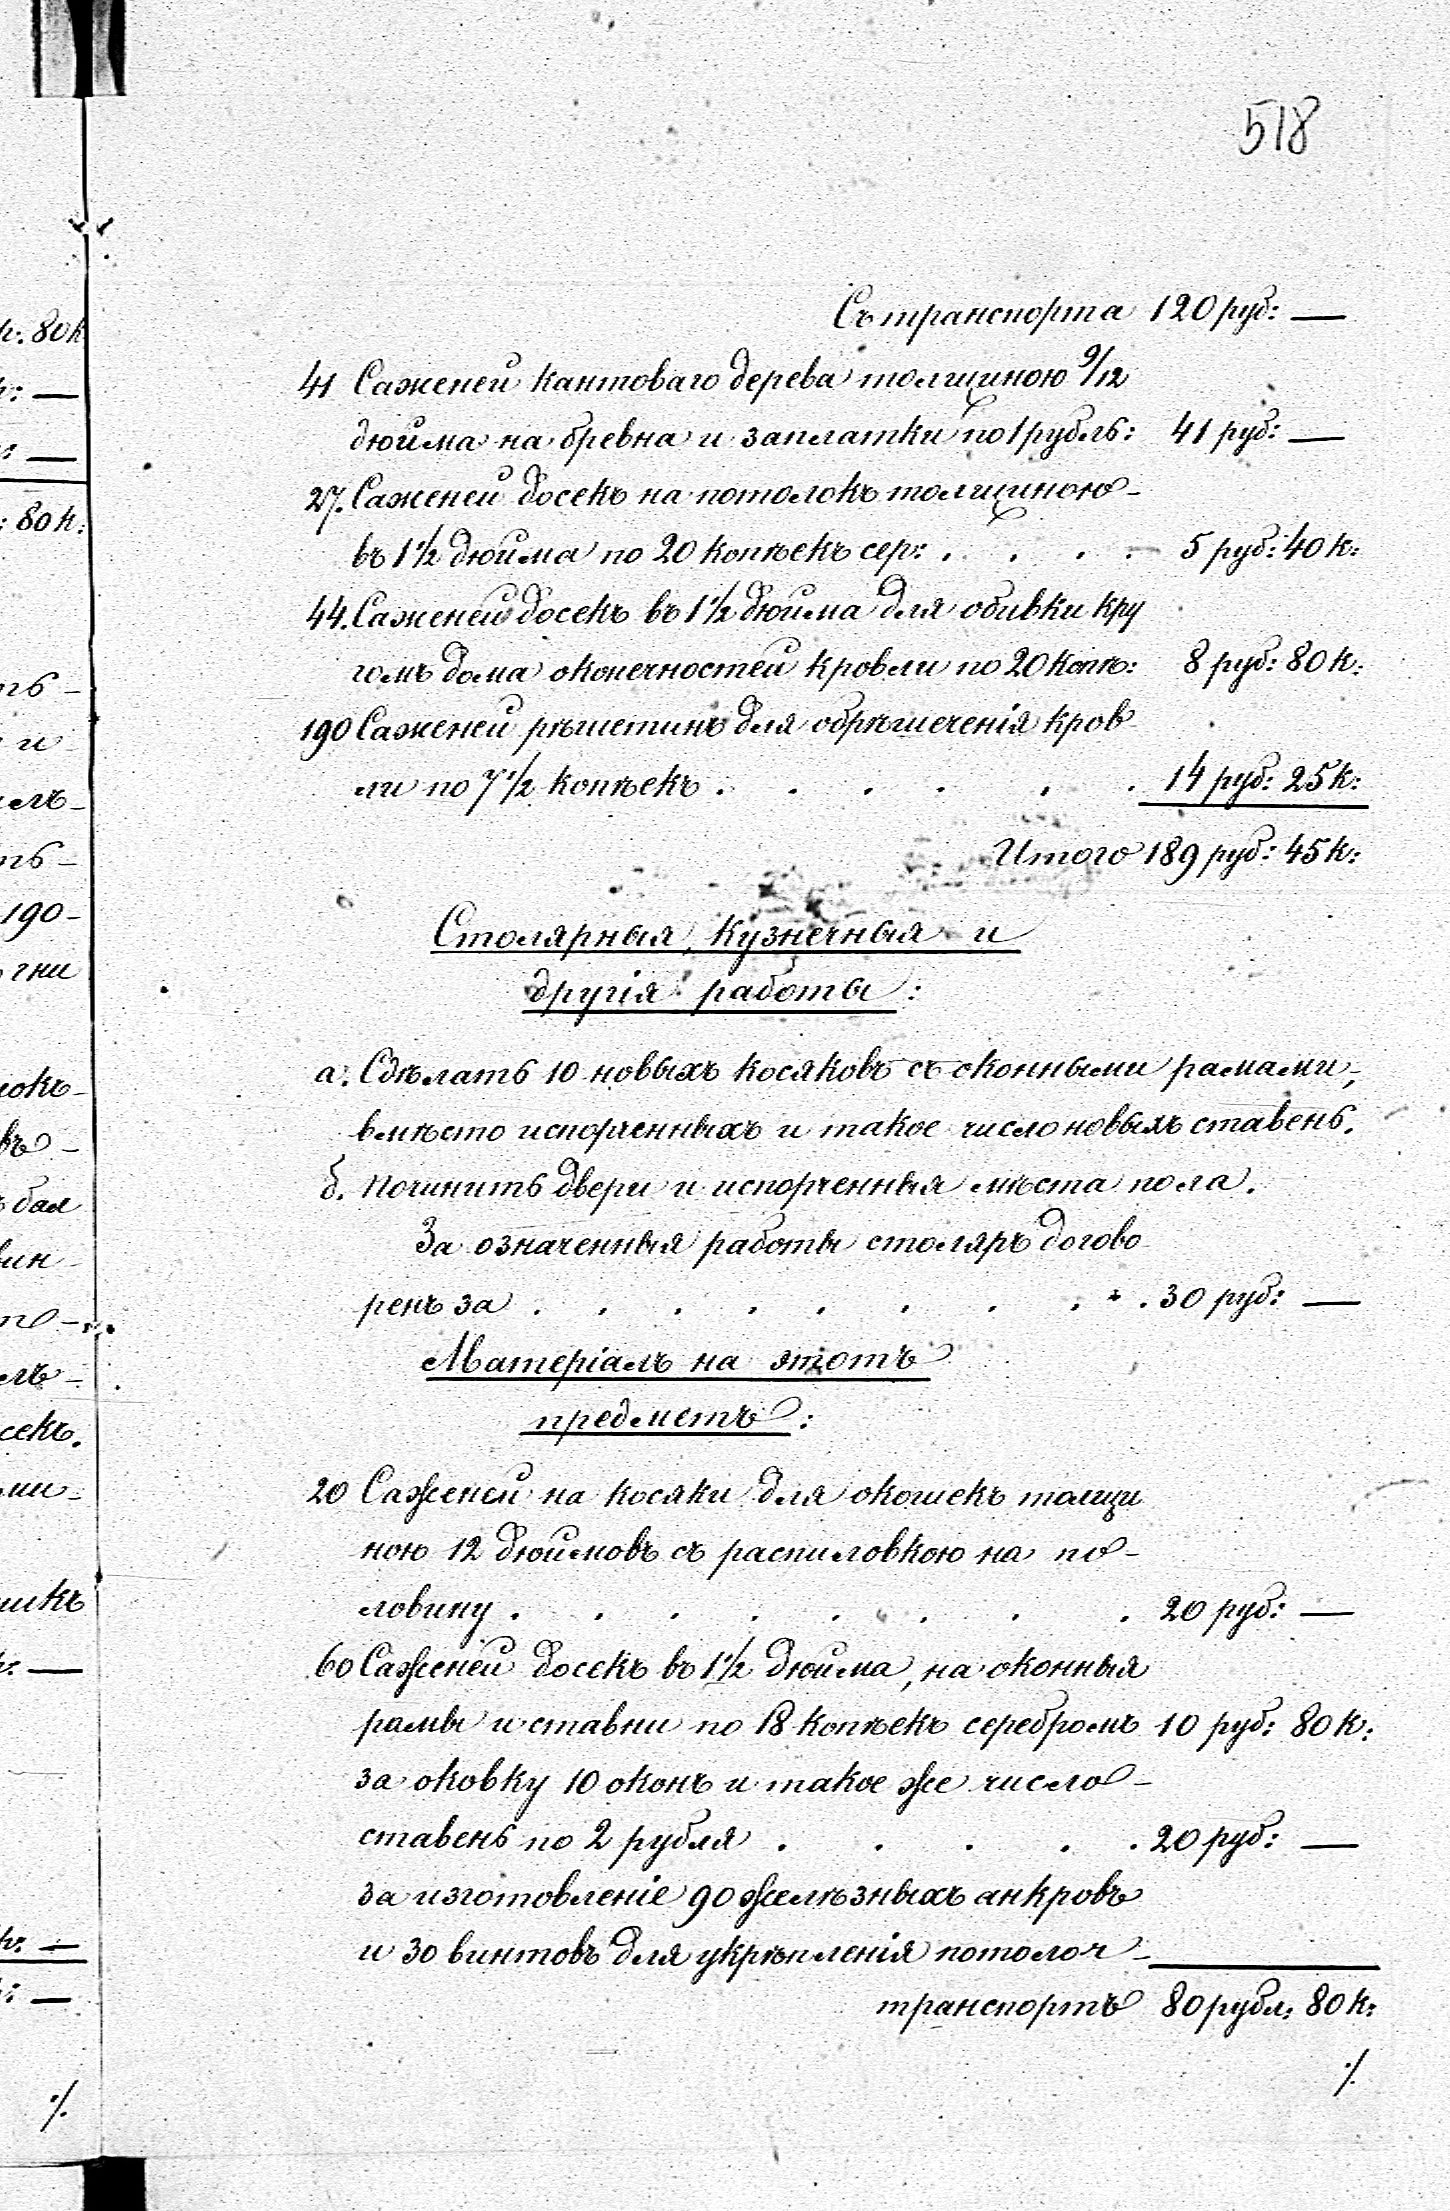 518
Съ транспорта 120 руб: —
41 Саженей кантоваго дерева толщиною 9/12
дюйма на бревна и заплатки по 1 рубль: 41 руб: —
27. Саженей досекъ на потолокъ толщиною-
въ 1 1/2 дюйма по 20 копѣекъ сер: . . . . 5 руб: 40 к:
44. Саженей досекъ въ 1 1/2 дюйма для обивки кру
гомъ дома оконечностей кровли по 20 копѣ: 8 руб: 80 к:
190 Саженей рѣшетинъ для обрѣшеченія кров
ли по 7 1/2 копѣекъ . . . . . . 14 руб: 25 к:
Итого 189 руб: 45 к:
Столярныя, кузнечныя и
другія работы:
а. Сдѣлать 10 новыхъ косяковъ съ оконными рамами,
вмѣсто испорченныхъ и такое число новыхъ ставень.
б. Починить двери и испорченныя мѣста пола.
За означенныя работы столяръ догово
ренъ за . . . . . . . . . 30 руб: —
Матеріалъ на этотъ
предметъ:
20 Саженей на косяки для окошекъ толщи
ною 12 дюймовъ съ распиловкою на по-
ловину . . . . . . . . 20 руб: —
60 Саженей досекъ въ 1 1/2 дюйма, на оконныя
рамы и ставни по 18 копѣекъ серебромъ 10 руб: 80 к:
за оковку 10 оконъ и такое же число-
ставень по 2 рубля . . . . . 20 руб: —
за изготовленіе 90 желѣзныхъ анкровъ
и 30 винтовъ для укрѣпленія потолоч-
транспортъ 80 рубл: 80 к:
./.
р: 80 к
—
—
: 80 к:
ть-
и-
ть-
190-
гни
локъ-
въ-
бал
вин-
то-
лъ-
секъ.
ми-
шкъ
р: —
р: —
: —
./.